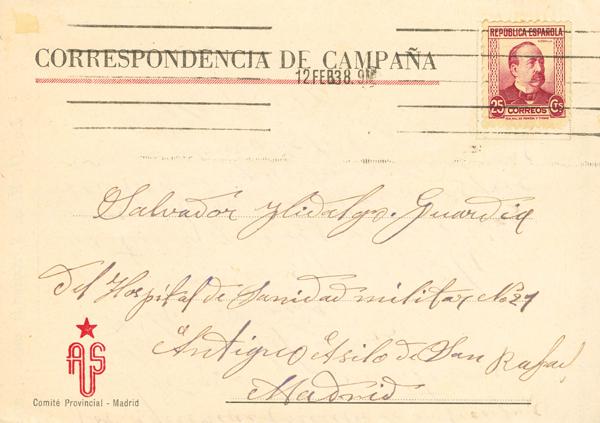 CORRESPONDENCIA DE CAMPAÑA
12 FEB 38. 9
REPÚBLICA ESPAÑOLA
25 CTS
CORREOS
Salvador Hidalgo. Guardia
del Hospital de Sanidad militar No 21
Antiguo Asilo de San Rafael
Madrid
AUS
Comité Provincial - Madrid